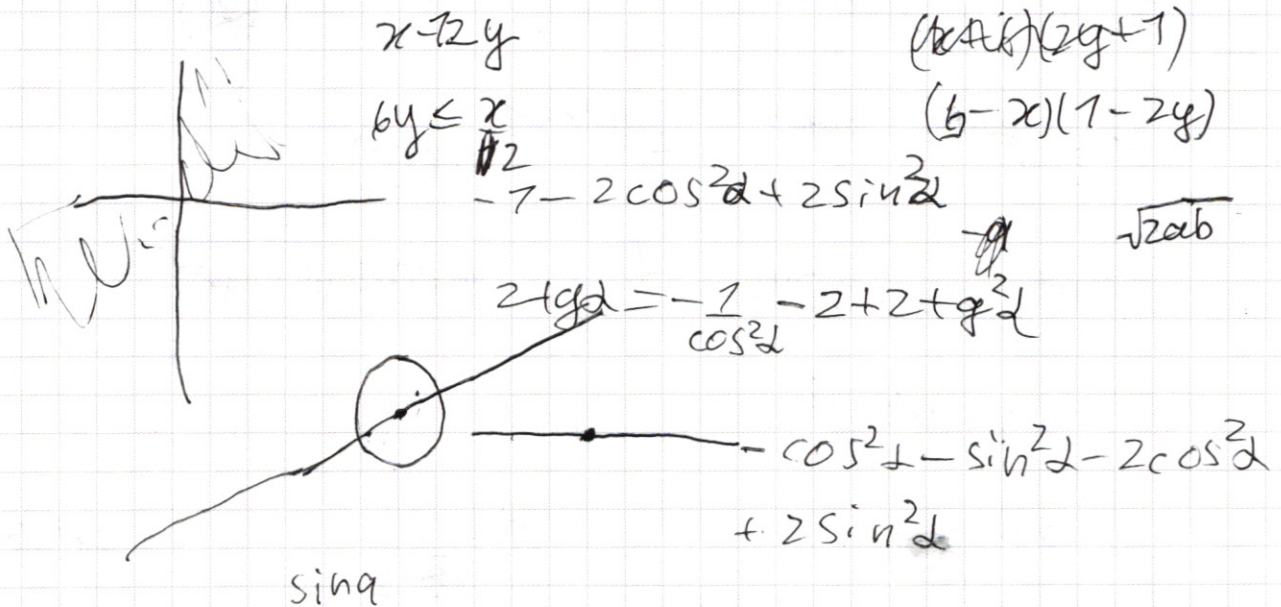 x-12y
(2y+1)
6y ≤ x/2
(6-x)(1-2y)
-1-2cos²α+2sin²α
√2ab
2tgα = -1/cos²α -2+2tg²α
-cos²α-sin²α-2cos²α
+2sin²α
sinα